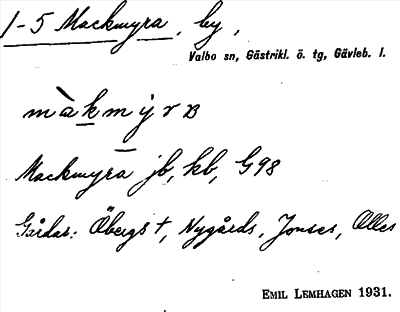 1-5 Mackmyra, by,
Valbo sn, Gästrikl. ö. tg, Gävleb. l.
màkmyrʙ
Mackmyra jb, kb, G98
Gårdar: Öbergs †, Nygårds, Jonses, Olles
EMIL LEMHAGEN 1931.